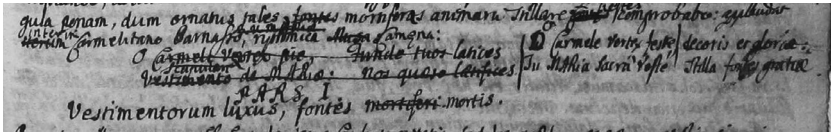 gula penam, dum ornatus fales, fontes mortiferos animaru stillare comprobabo: applaudat
interim Carmelitano Parnasso, rythmica Camæna:
O Carmeli Vertex pie, funde tuos latices O Carmele vertex feste decoris et gloriæ.
Vestimento da Mathiæ: nos quæso lætifices Tu Mathia sacra veste stilla fontes gratiæ
PARS I.
Vestimentorum luxus, fontes mortiferi mortis.